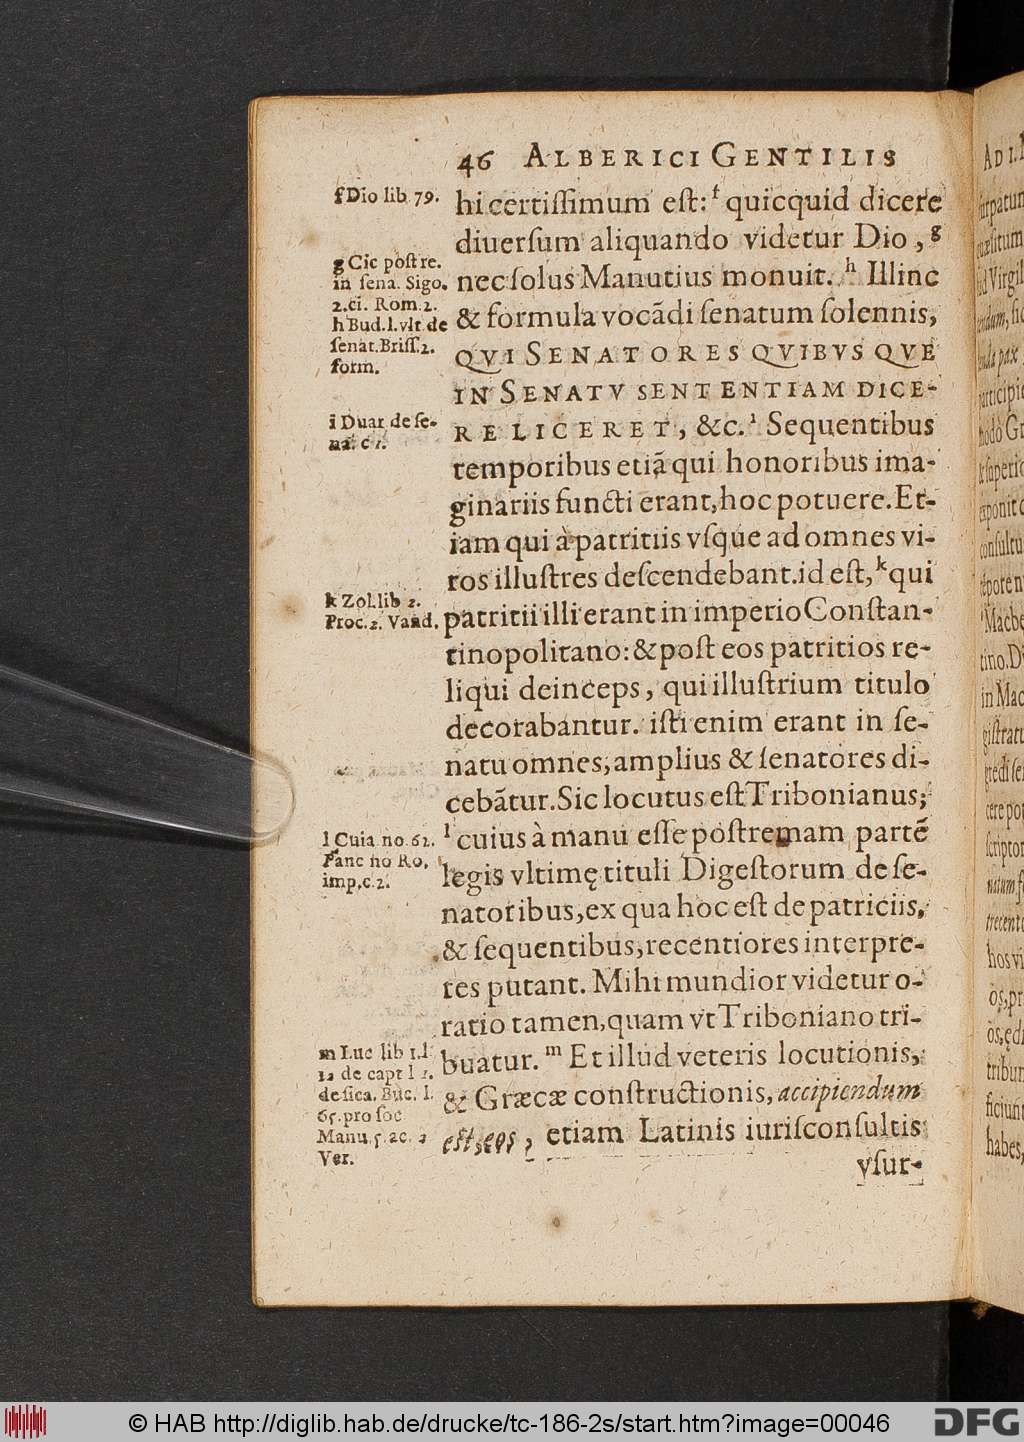 46 ALBERICI GENTILIS
f Dio lib 79.
hi certiſſimum eſt: ᶠ quicquid dicere
diuerſum aliquando videtur Dio, ᵍ
g Cic poſt re.
in ſena. Sigo.
2. ci. Rom. 2.
nec ſolus Manutius monuit. ʰ Illinc
h Bud. l. vlt de
ſenat. Briſſ. 2.
form.
& formula vocãdi ſenatum ſolennis,
QVI SENATORES QVIBVS QVE
IN SENATV SENTENTIAM DICE-
i Duar de ſe-
na. c 1.
RE LICERET, &c. ⁱ Sequentibus
temporibus etiã qui honoribus ima-
ginariis functi erant, hoc potuere. Et-
iam qui à patritiis vſque ad omnes vi-
ros illuſtres deſcendebant. id eſt, ᵏ qui
k Zoſ. lib 2.
Proc. 2. Vand.
patritii illi erant in imperio Conſtan-
tinopolitano: & poſt eos patritios re-
liqui deinceps, qui illuſtrium titulo
decorabantur. iſti enim erant in ſe-
natu omnes, amplius & ſenatores di-
cebãtur. Sic locutus eſt Tribonianus;
l Cuia no. 62.
Panc no Ro.
imp. c. 2.
ˡ cuius à manu eſſe poſtremam partẽ
legis vltimę tituli Digeſtorum de ſe-
natoribus, ex qua hoc eſt de patriciis,
& ſequentibus, recentiores interpre-
tes putant. Mihi mundior videtur o-
ratio tamen, quam vt Triboniano tri-
m Luc lib 1. l.
12 de capt l 1.
de ſica. Buc. l.
65. pro ſoc
Manu. 5. ac. 2
Ver.
buatur. ᵐ Et illud veteris locutionis,
& Græcæ conſtructionis, accipiendum
eſt, eos, etiam Latinis iuriſconſultis
vſur-
© HAB http://diglib.hab.de/drucke/tc-186-2s/start.htm?image=00046
DFG